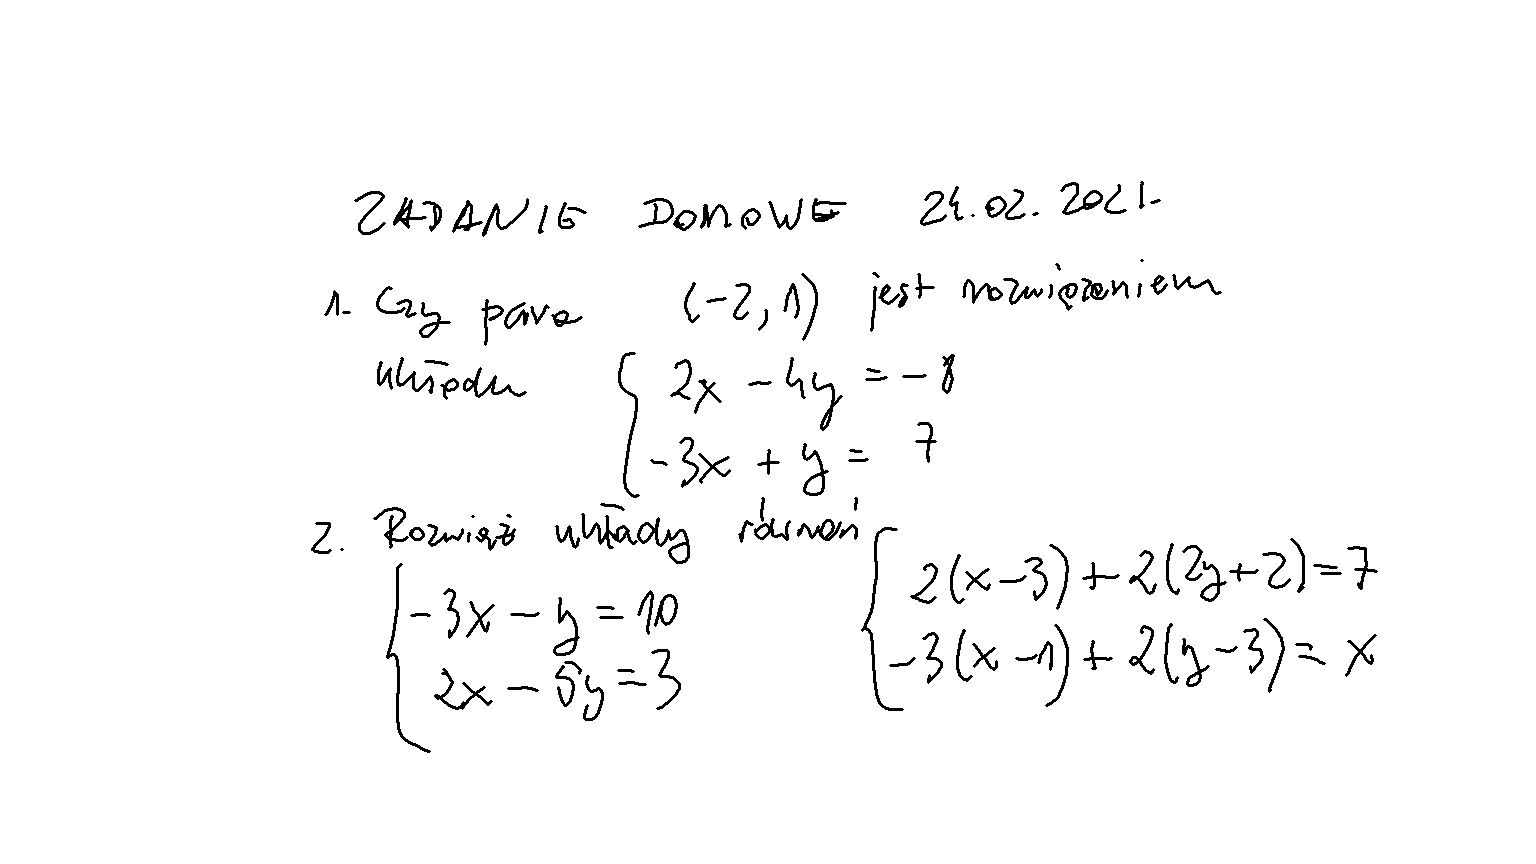 ZADANIE DOMOWE 24.02.2021.
1. Czy para (-2, 1) jest rozwiązaniem
układu { 2x - 4y = -8
-3x + y = 7
2. Rozwiąż układy równań
{ -3x - y = 10
2x - 5y = 3
{ 2(x-3) + 2(2y+2) = 7
-3(x-1) + 2(y-3) = x